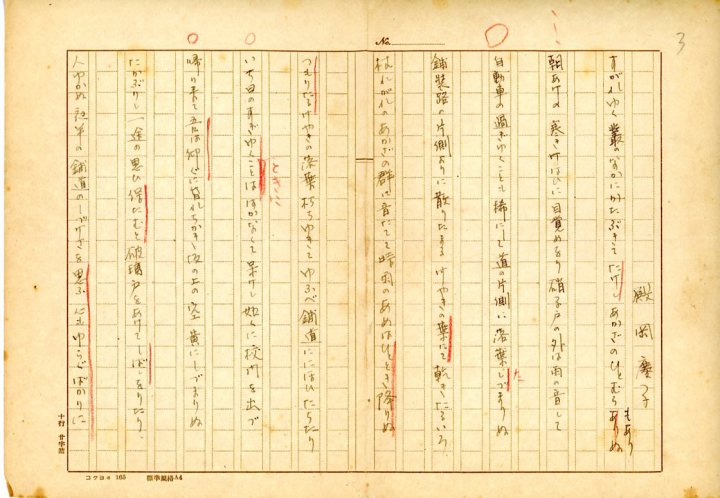 3
No.
殿岡
すがれゆく叢のなかにかたぶきてたけしあかざのひとむらありぬ
もあり
朝あけの寒きけはひに目覚めをり硝子戸の外は雨の音して
自動車の過ぎゆくことも稀にして道の片側に落葉しづまりぬ
た
鋪装路の片側よりに散りたまる けやきの葉にて乾きたるいろ
杖にがれのあかざの群は音たてて時雨のあめはひととき降りぬ
つもりたるけやきの落葉朽ちゆきてゆふべ鋪道ににほひたちたり
いち日のすぎゆくことははかなくて
ときに
に校門を出づ
帰り来て
坂の上の空黄にしづまりぬ
たかぶりし一途の思ひ保たむと玻璃戸をあけてしばしをりたり
人ゆかぬ
の鋪道のしづけさを思ふ心もゆらぐばかりに
十行 廿字詰
コクヨ 165 標準規格A4